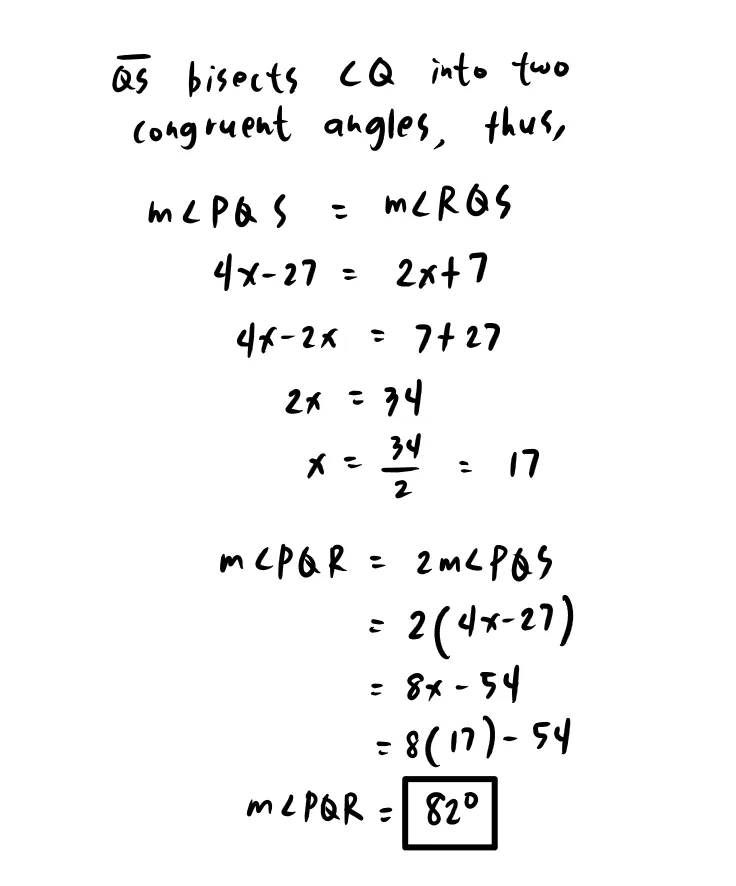 Q̅S̅ bisects ∠Q into two
congruent angles, thus,
m∠PQS = m∠RQS
4x-27 = 2x+7
4x-2x = 7+27
2x = 34
x = 34/2 = 17
m∠PQR = 2m∠PQS
= 2(4x-27)
= 8x-54
= 8(17)-54
m∠PQR = 82°